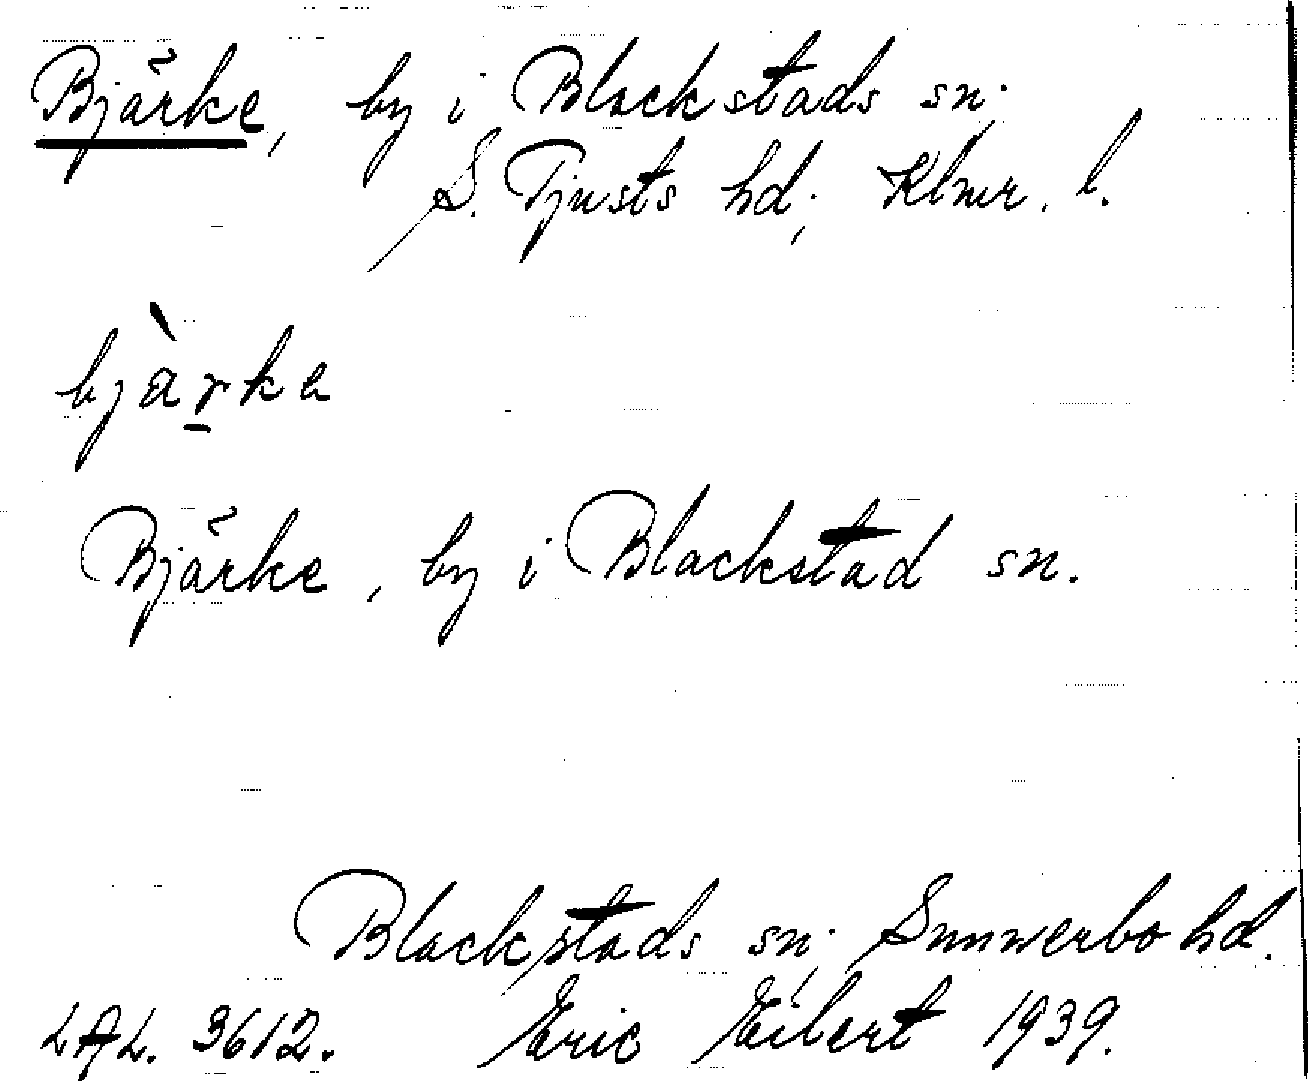 Bjärke, by i Blackstads sn;
S. Tjusts hd; Klmr. l.
bjàrka
Bjärke, by i Blackstad sn.
Blackstads sn; Sunnerbo hd.
LAL. 3612. Eric Eilert 1939.